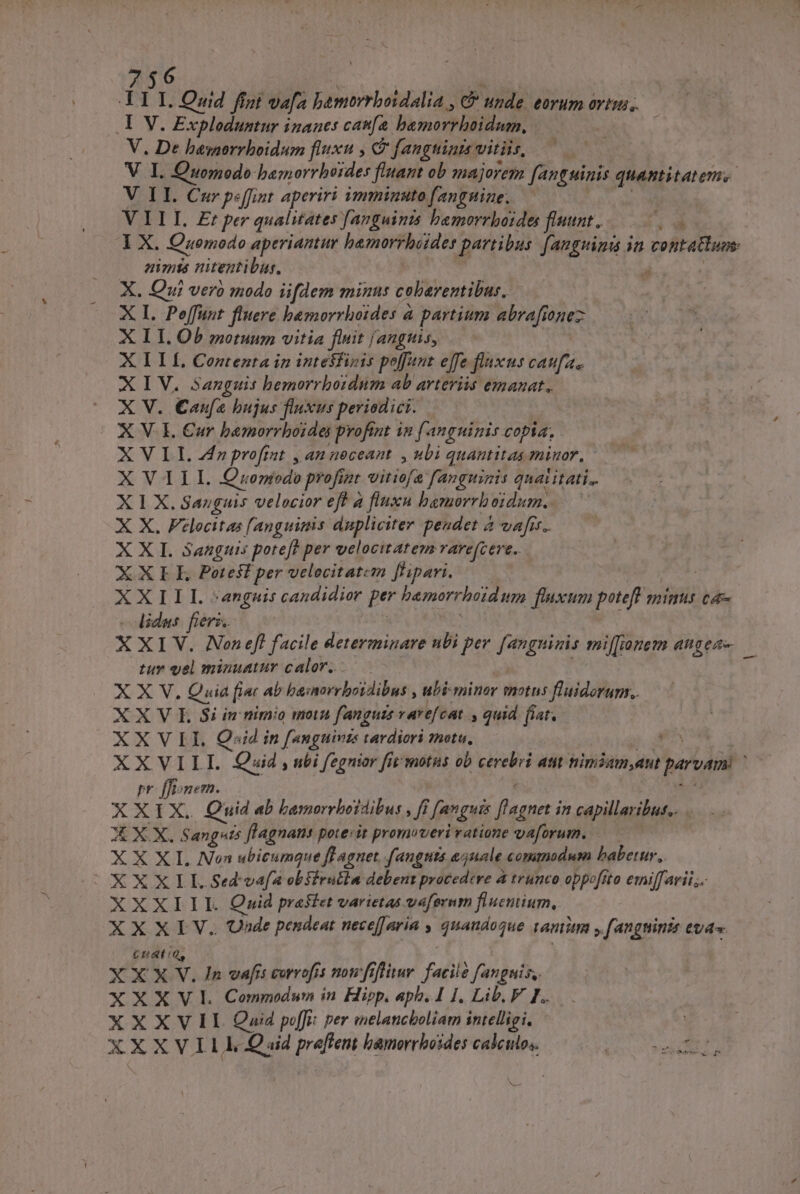 756
III. Quid sint vasa hæmorrhoidalia, & unde eorum ortus.
IV. Exploduntur inanes causæ hæmorrhoidum,
V. De hæmorrhoidum fluxu, & sanguinis vitiis,
VI. Quomodo hæmorrhoides fluant ob majorem sanguinis quantitatem.
VII. Cur possint aperiri imminuto sanguine.
VIII. Et per qualitates sanguinis hæmorrhoides fluunt.
IX. Quomodo aperiantur hæmorrhoides partibus sanguinis in contactum
nimis nitentibus,
X. Qui verò modo iisdem minus cohærentibus.
XI. Possunt fluere hæmorrhoides à partium abrasiones
XII. Ob motuum vitia fluit sanguis,
XIII. Contenta in intestinis possunt esse fluxus causa.
XIV. Sanguis hemorrhoidum ab arteriis emanat.
XV. Causæ hujus fluxus periodici.
XVI. Cur hæmorrhoides prosint in sanguinis copia.
XVII. An prosint, an noceant, ubi quantitas minor.
XVIII. Quomodo prosint vitiosæ sanguinis qualitati.
XIX. Sanguis velocior est à fluxu hæmorrhoidum.
XX. Velocitas sanguinis dupliciter pendet à vasis.
XXI. Sanguis potest per velocitatem rarescere.
XXII. Potest per velocitatem stipari.
XXIII. Sanguis candidior per hæmorrhoidum fluxum potest minus ca-
lidus fieri.
XXIV. Non est facile determinare ubi per sanguinis missionem augea-
tur vel minuatur calor.
XXV. Quia fiat ab hæmorrhoidibus, ubi minor motus fluidorum.
XXVI. Si in nimio motu sanguis rarescat, quid fiat.
XXVII. Quid in sanguinis tardiori motu.
XXVIII. Quid, ubi segnior sit motus ob cerebri aut nimiam, aut parvam
pressionem.
XXIX. Quid ab hæmorrhoidibus, si sanguis stagnet in capillaribus.
XXX. Sanguis stagnans poterit promoveri ratione vasorum.
XXXI. Non ubicumque stagnet sanguis æquale commodum habetur.
XXXII. Sed vasa obstructa debent procedere à trunco opposito emissarii.
XXXIII. Quid præstet varietas vasorum fluentium.
XXXIV. Unde pendeat necessaria, quandoque tantùm, sanguinis eva-
cuatio,
XXXV. In vasis corrosis non sistitur facilè sanguis.
XXXVI. Commodum in Hipp. aph. II. Lib. VI.
XXXVII. Quid possit per melancholiam intelligi.
XXXVIII. Quid præstent hæmorrhoides calculo.